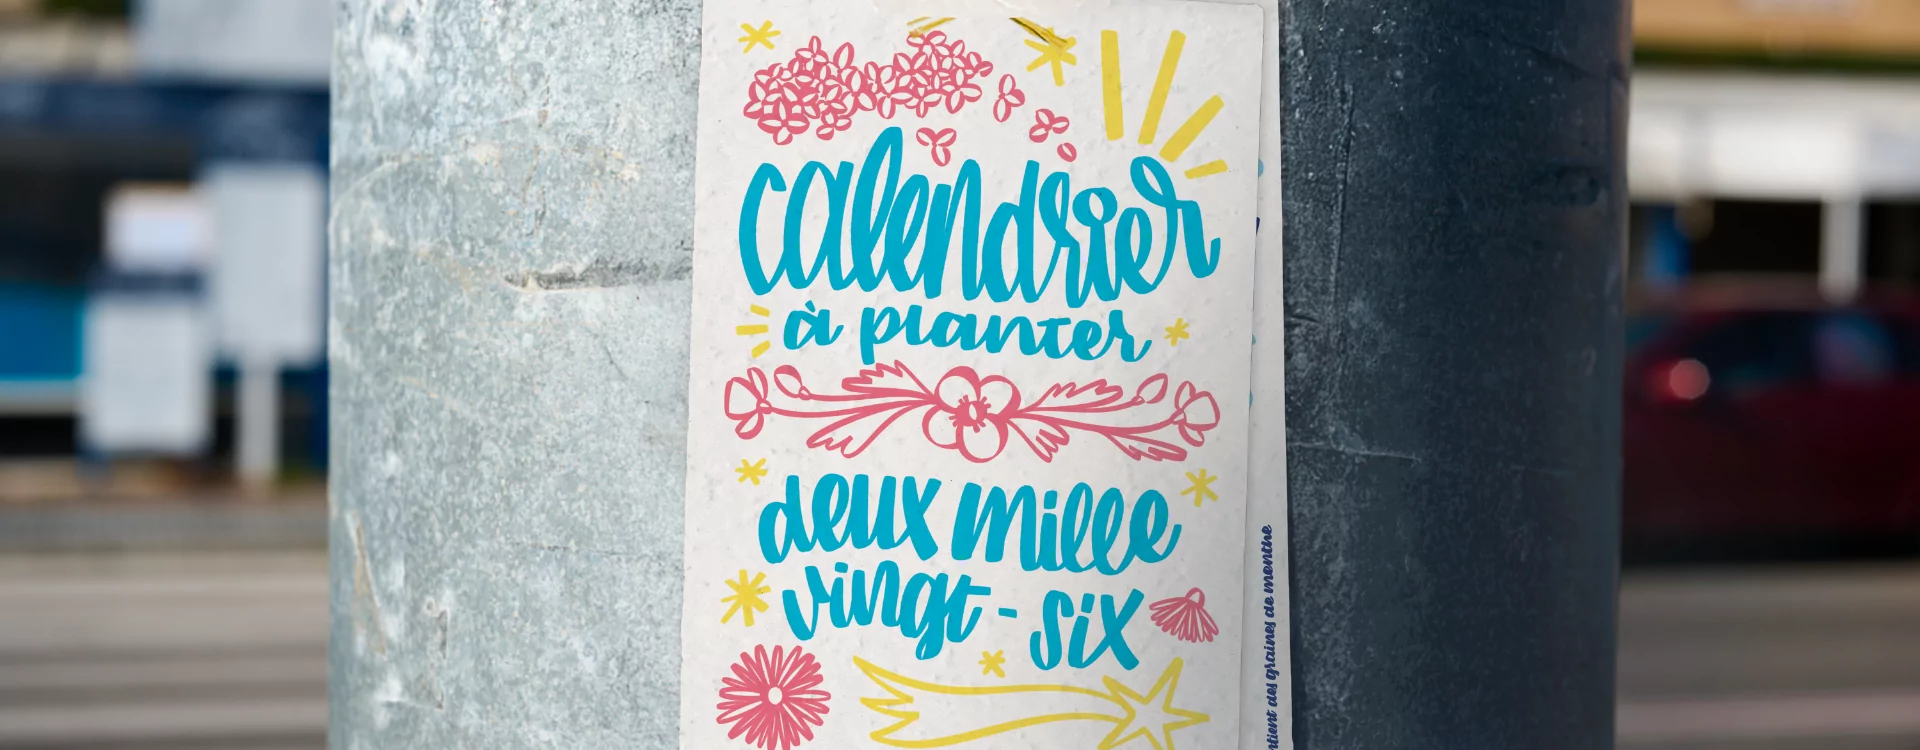 calendrier
à planter
deux mille
vingt-six
des graines de menthe